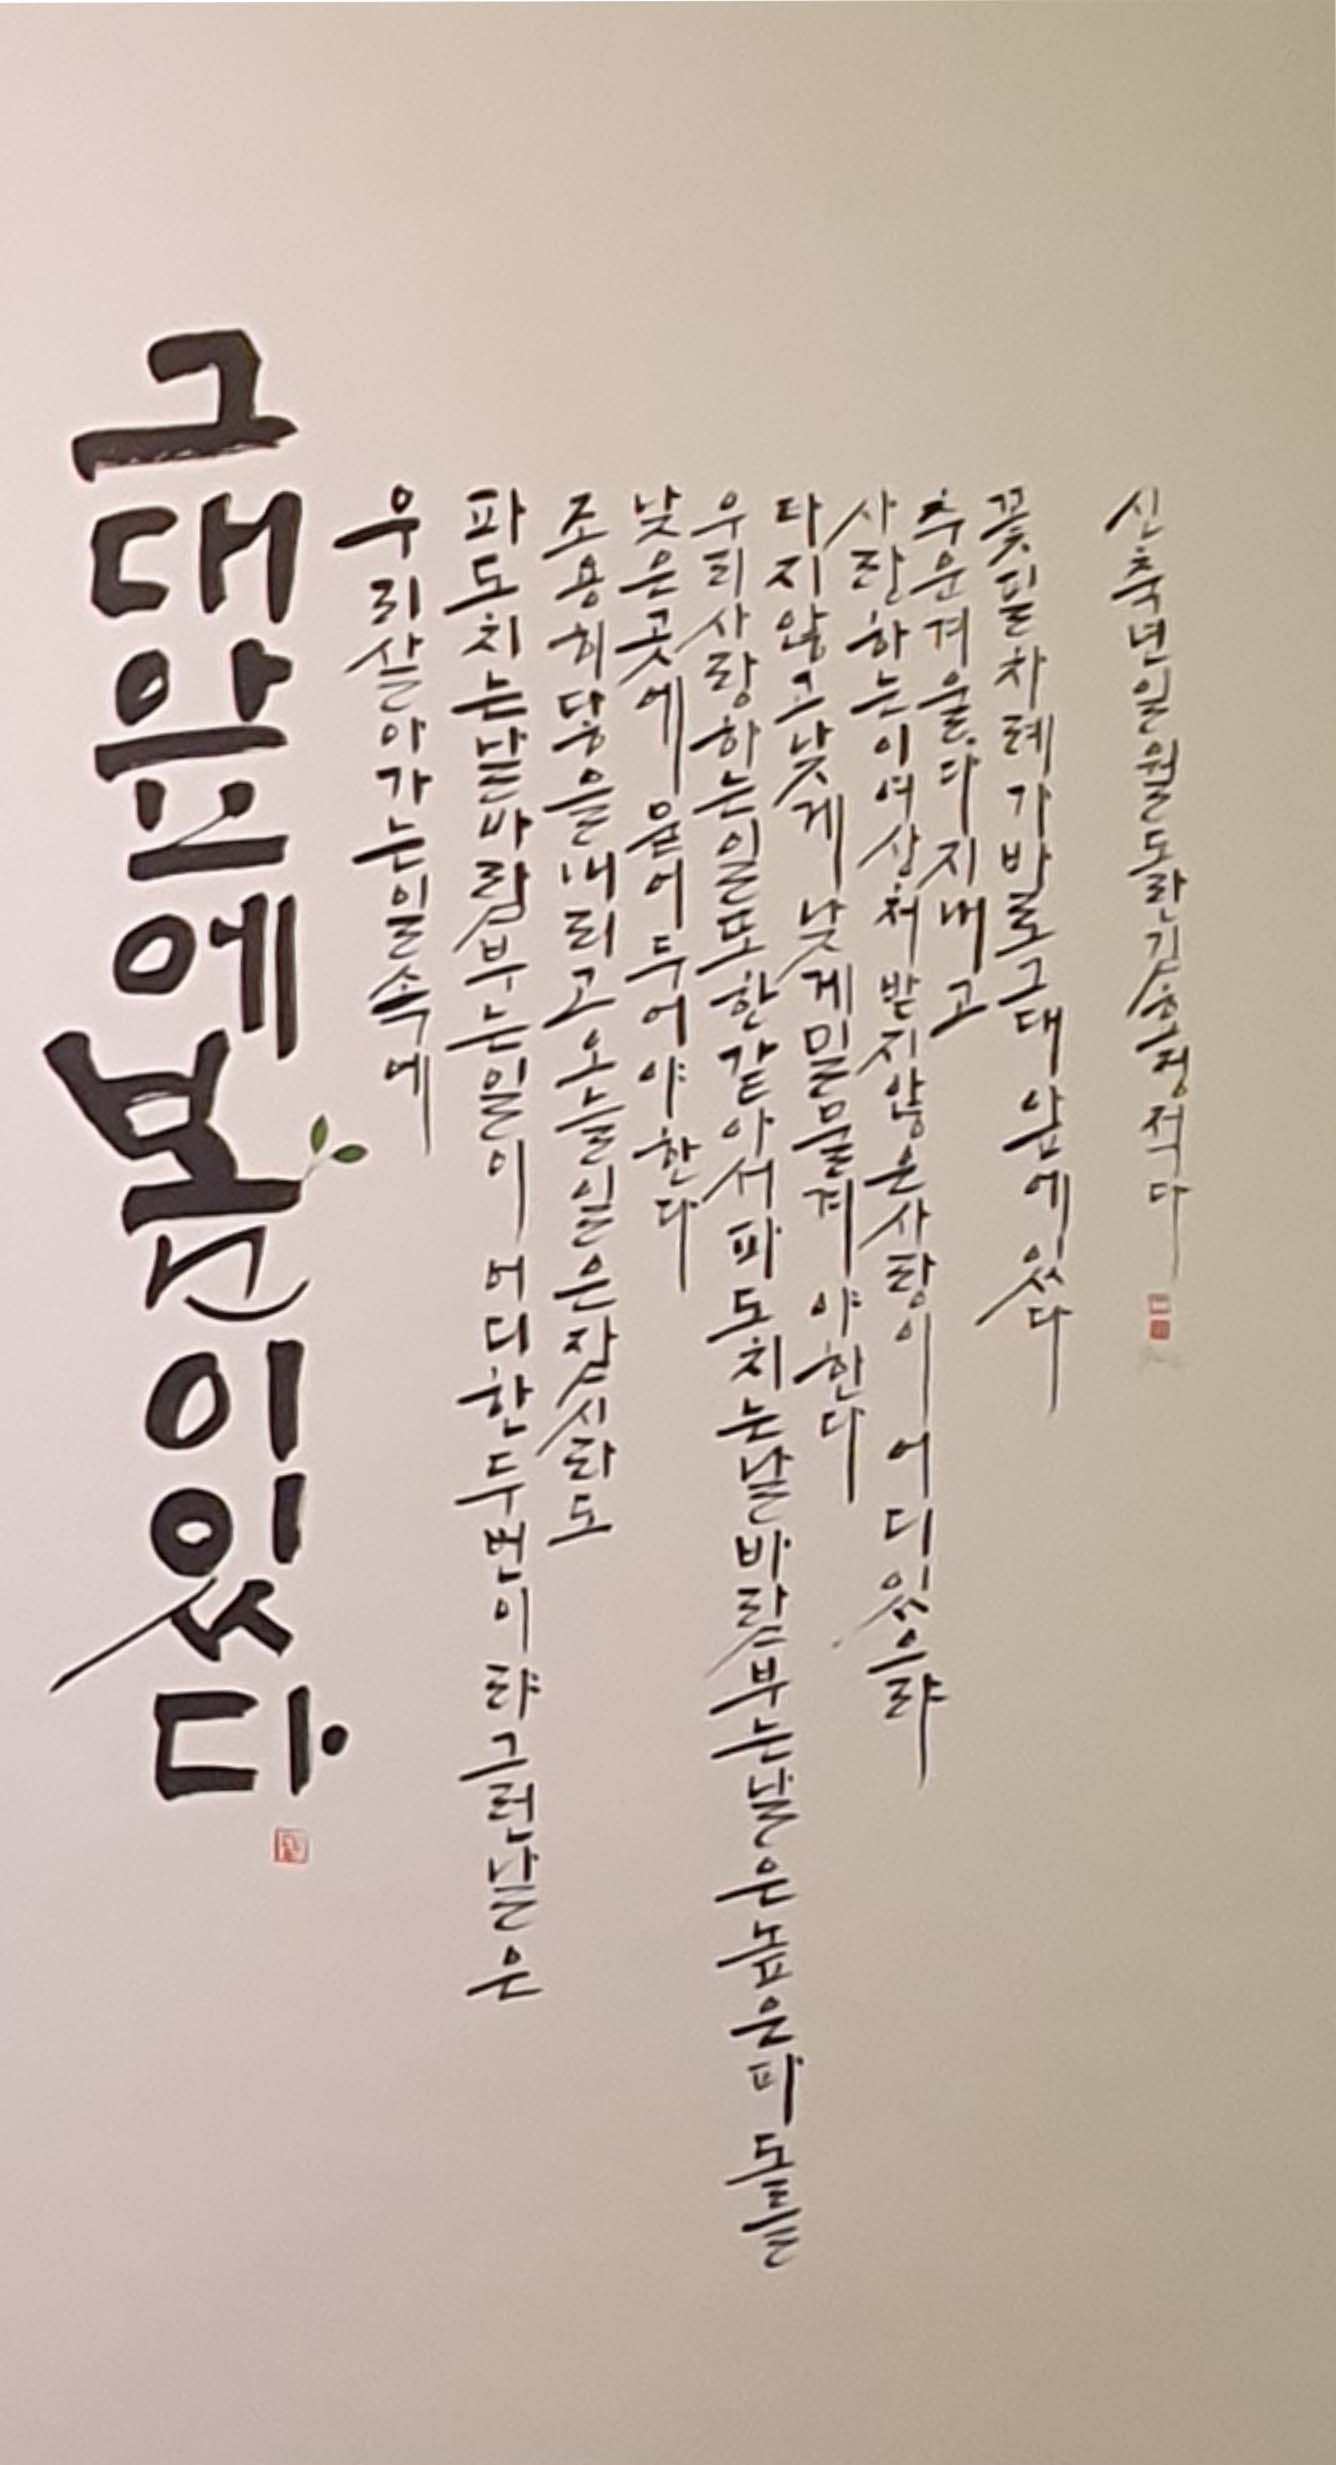 그대 앞에 봄이 있다
우리 살아가는 일 속에
파도 치는 날 바람 부는 일이 어디 한두 번이랴 그런 날은
조용히 닻을 내리고 오늘 일은 잠시라도
낮은 곳에 묻어 두어야 한다
우리 사랑하는 일 또한 같아서 파도 치는 날 바람 부는 날은 높은 파도를
타지 않고 낮게 낮게 밀물져야 한다
사랑하는 이여 상처받지 않은 사랑이 어디 있으랴
추운 겨울 다 지내고
꽃필 차례가 바로 그대 앞에 있다
신축년 일월 도란 적다